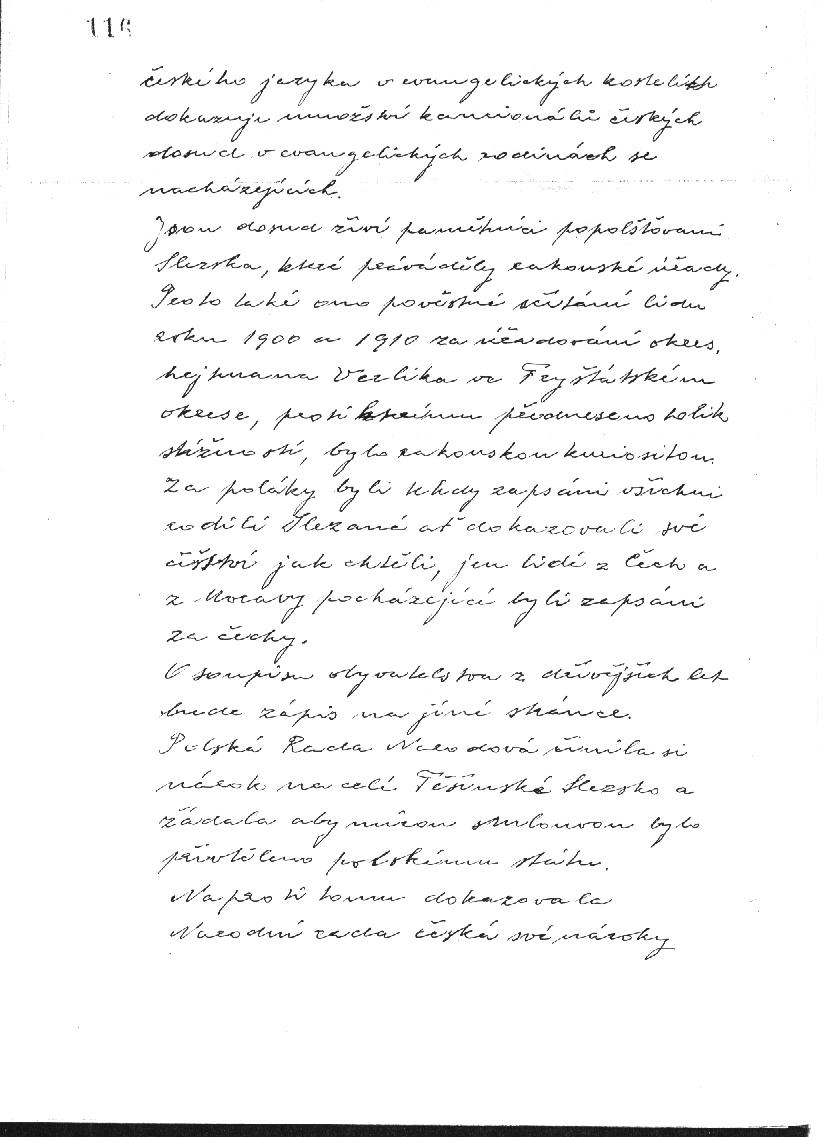 116
českého jazyka v evangelických kostelích
dokazuje množství kancionálů českých
dosud v evangelických rodinách se
nacházejících.
Jsou dosud živí pamětníci popolšťovaní
Slezska, které prováděly rakouské úřady.
Proto také ono pověstné sčítání lidu
roku 1900 a 1910 za úřadování okres.
hejtmana Verlika ve Fryštátském
okrese, proti kterému předneseno tolik
stížností, bylo rakouskou kuriositou.
Za poláky byli tehdy zapsáni všichni
rodilí Slezané ať dokazovali své
češství jak chtěli, jen lidé z Čech a
z Moravy pocházející byli zapsáni
za čechy.
O soupisu obyvatelstva z dřívějších let
bude zápis na jiné stránce.
Polská Rada Narodová činila si
nárok na celé Těšínské Slezsko a
žádala aby mírou smlouvou bylo
přivtěleno polskému státu.
Naproti tomu dokazovala
Narodní rada česká své nároky